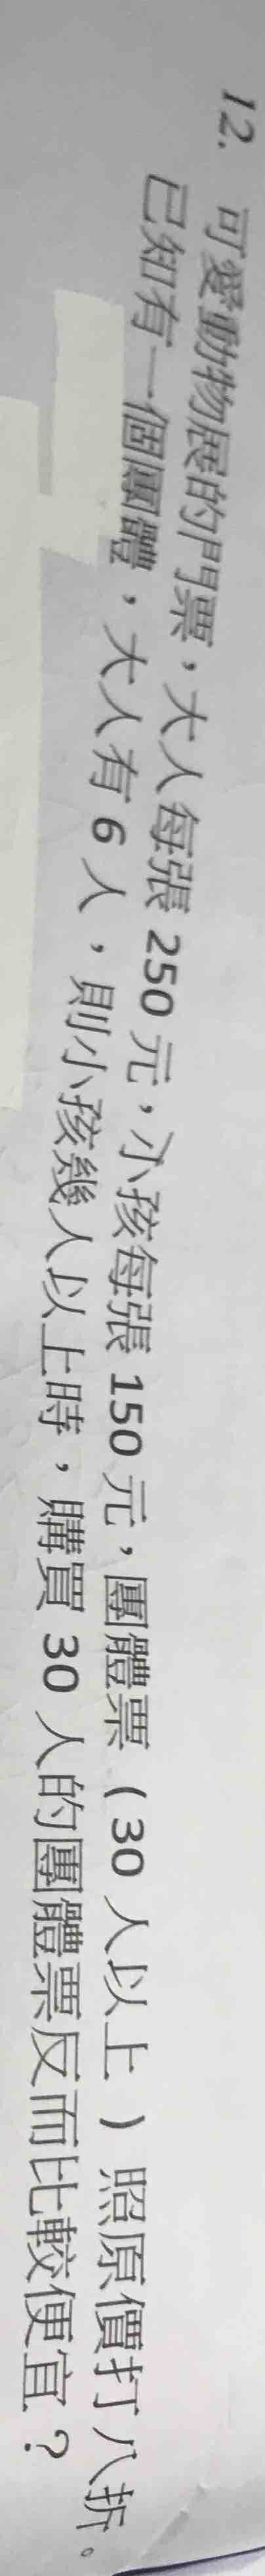 12. 可愛動物展的門票，大人每張 250 元，小孩每張 150 元，團體票（30 人以上）照原價打八折。
已知有一個團體，大人有 6 人，則小孩幾人以上時，購買 30 人的團體票反而比較便宜？